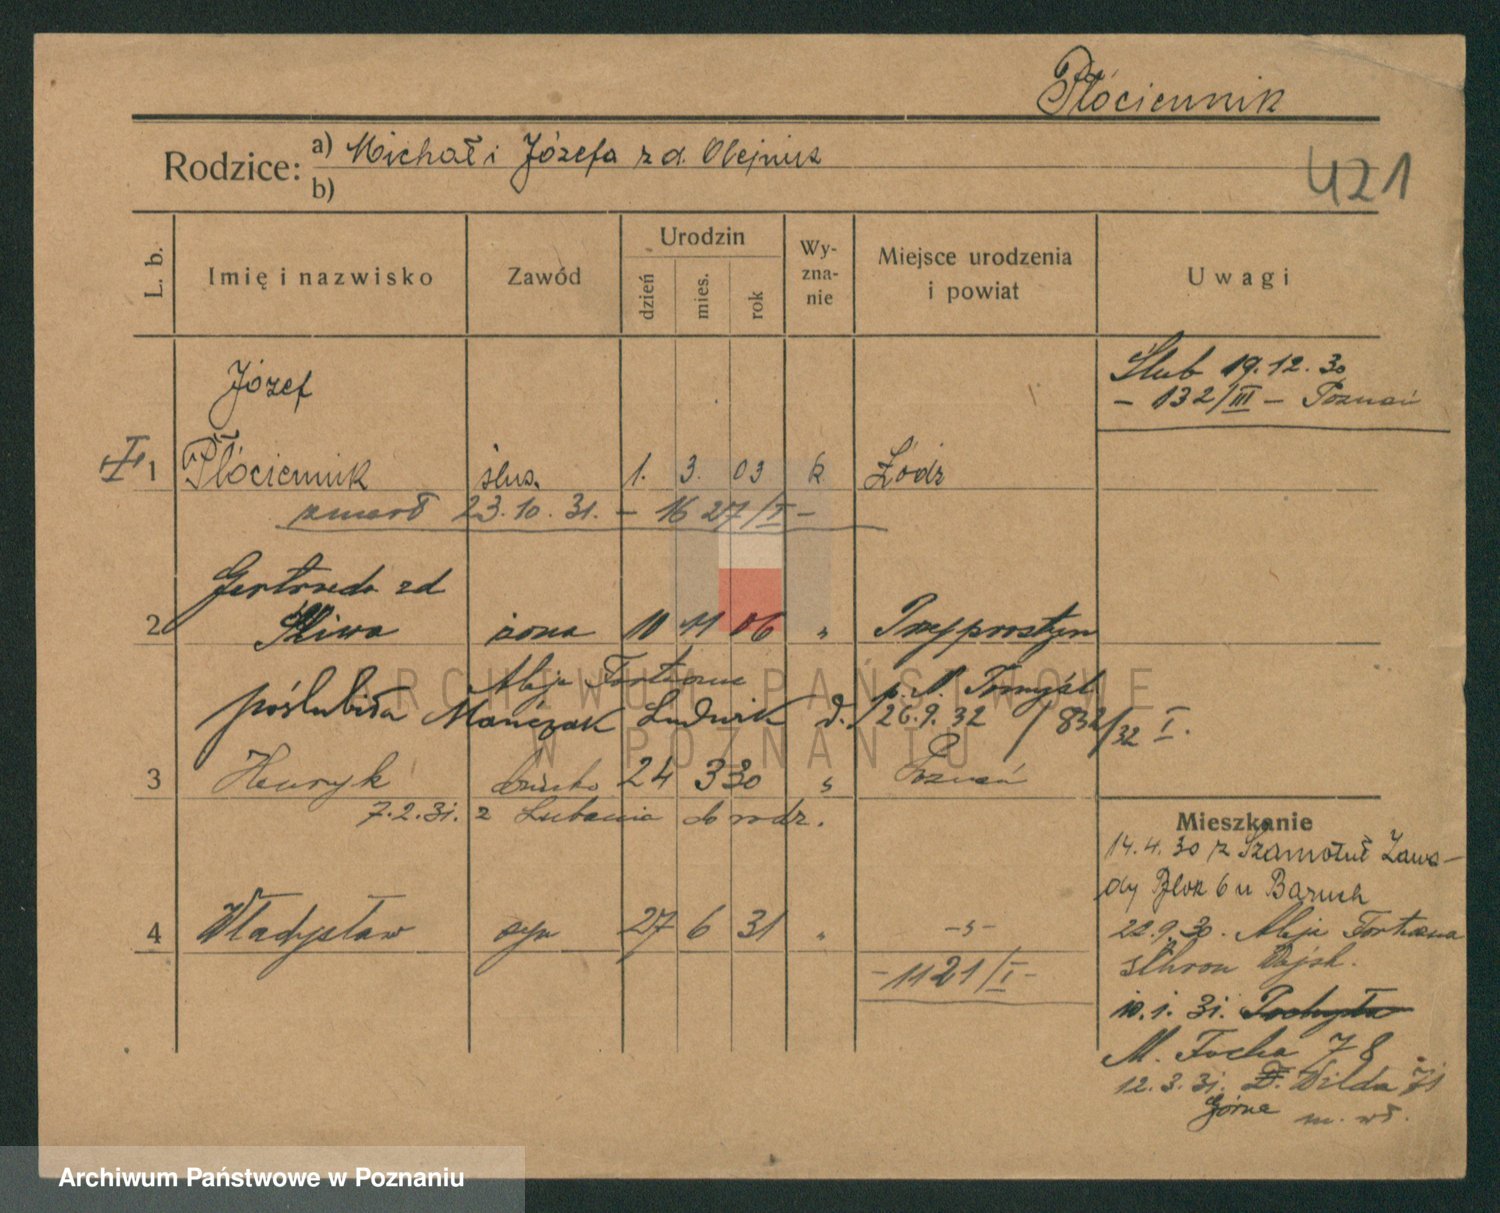 Płóciennik
Rodzice: a) Michał i Józefa z d. Olejnik
b)
421
L. b.
Imię i nazwisko
Zawód
Urodzin
dzień
mies.
rok
Wy-
zna-
nie
Miejsce urodzenia
i powiat
Uwagi
Ślub 19.12.30
- 132/III - Poznań
Józef
I 1 Płóciennik ślus. 1. 3. 03 k Łódz
zmarł 23.10.31. - 1627/I -
Gertruda zd
2 Śliwa żona 10 11 06 " Przyprostyn
Aleje p. N. Tomyśl
poślubiła Mańczak Ludwik d. 26.9.32 / 832/32 I.
3 Henryk dziecko 24 3 30 " Poznań
7.2.31. z Lubania do rodz.
4 Władysław syn 27 6 31 " -"-
- 1121/I -
Mieszkanie
14.4.30 z Szamotuł Zawa-
dy Blok 6 u Baruch
22.9.30. Aleje
Schron
10.1.31.
M. Focha 78
12.3.31. Wilda 71
Górna m. wł.
ARCHIWUM PAŃSTWOWE
W POZNANIU
Archiwum Państwowe w Poznaniu